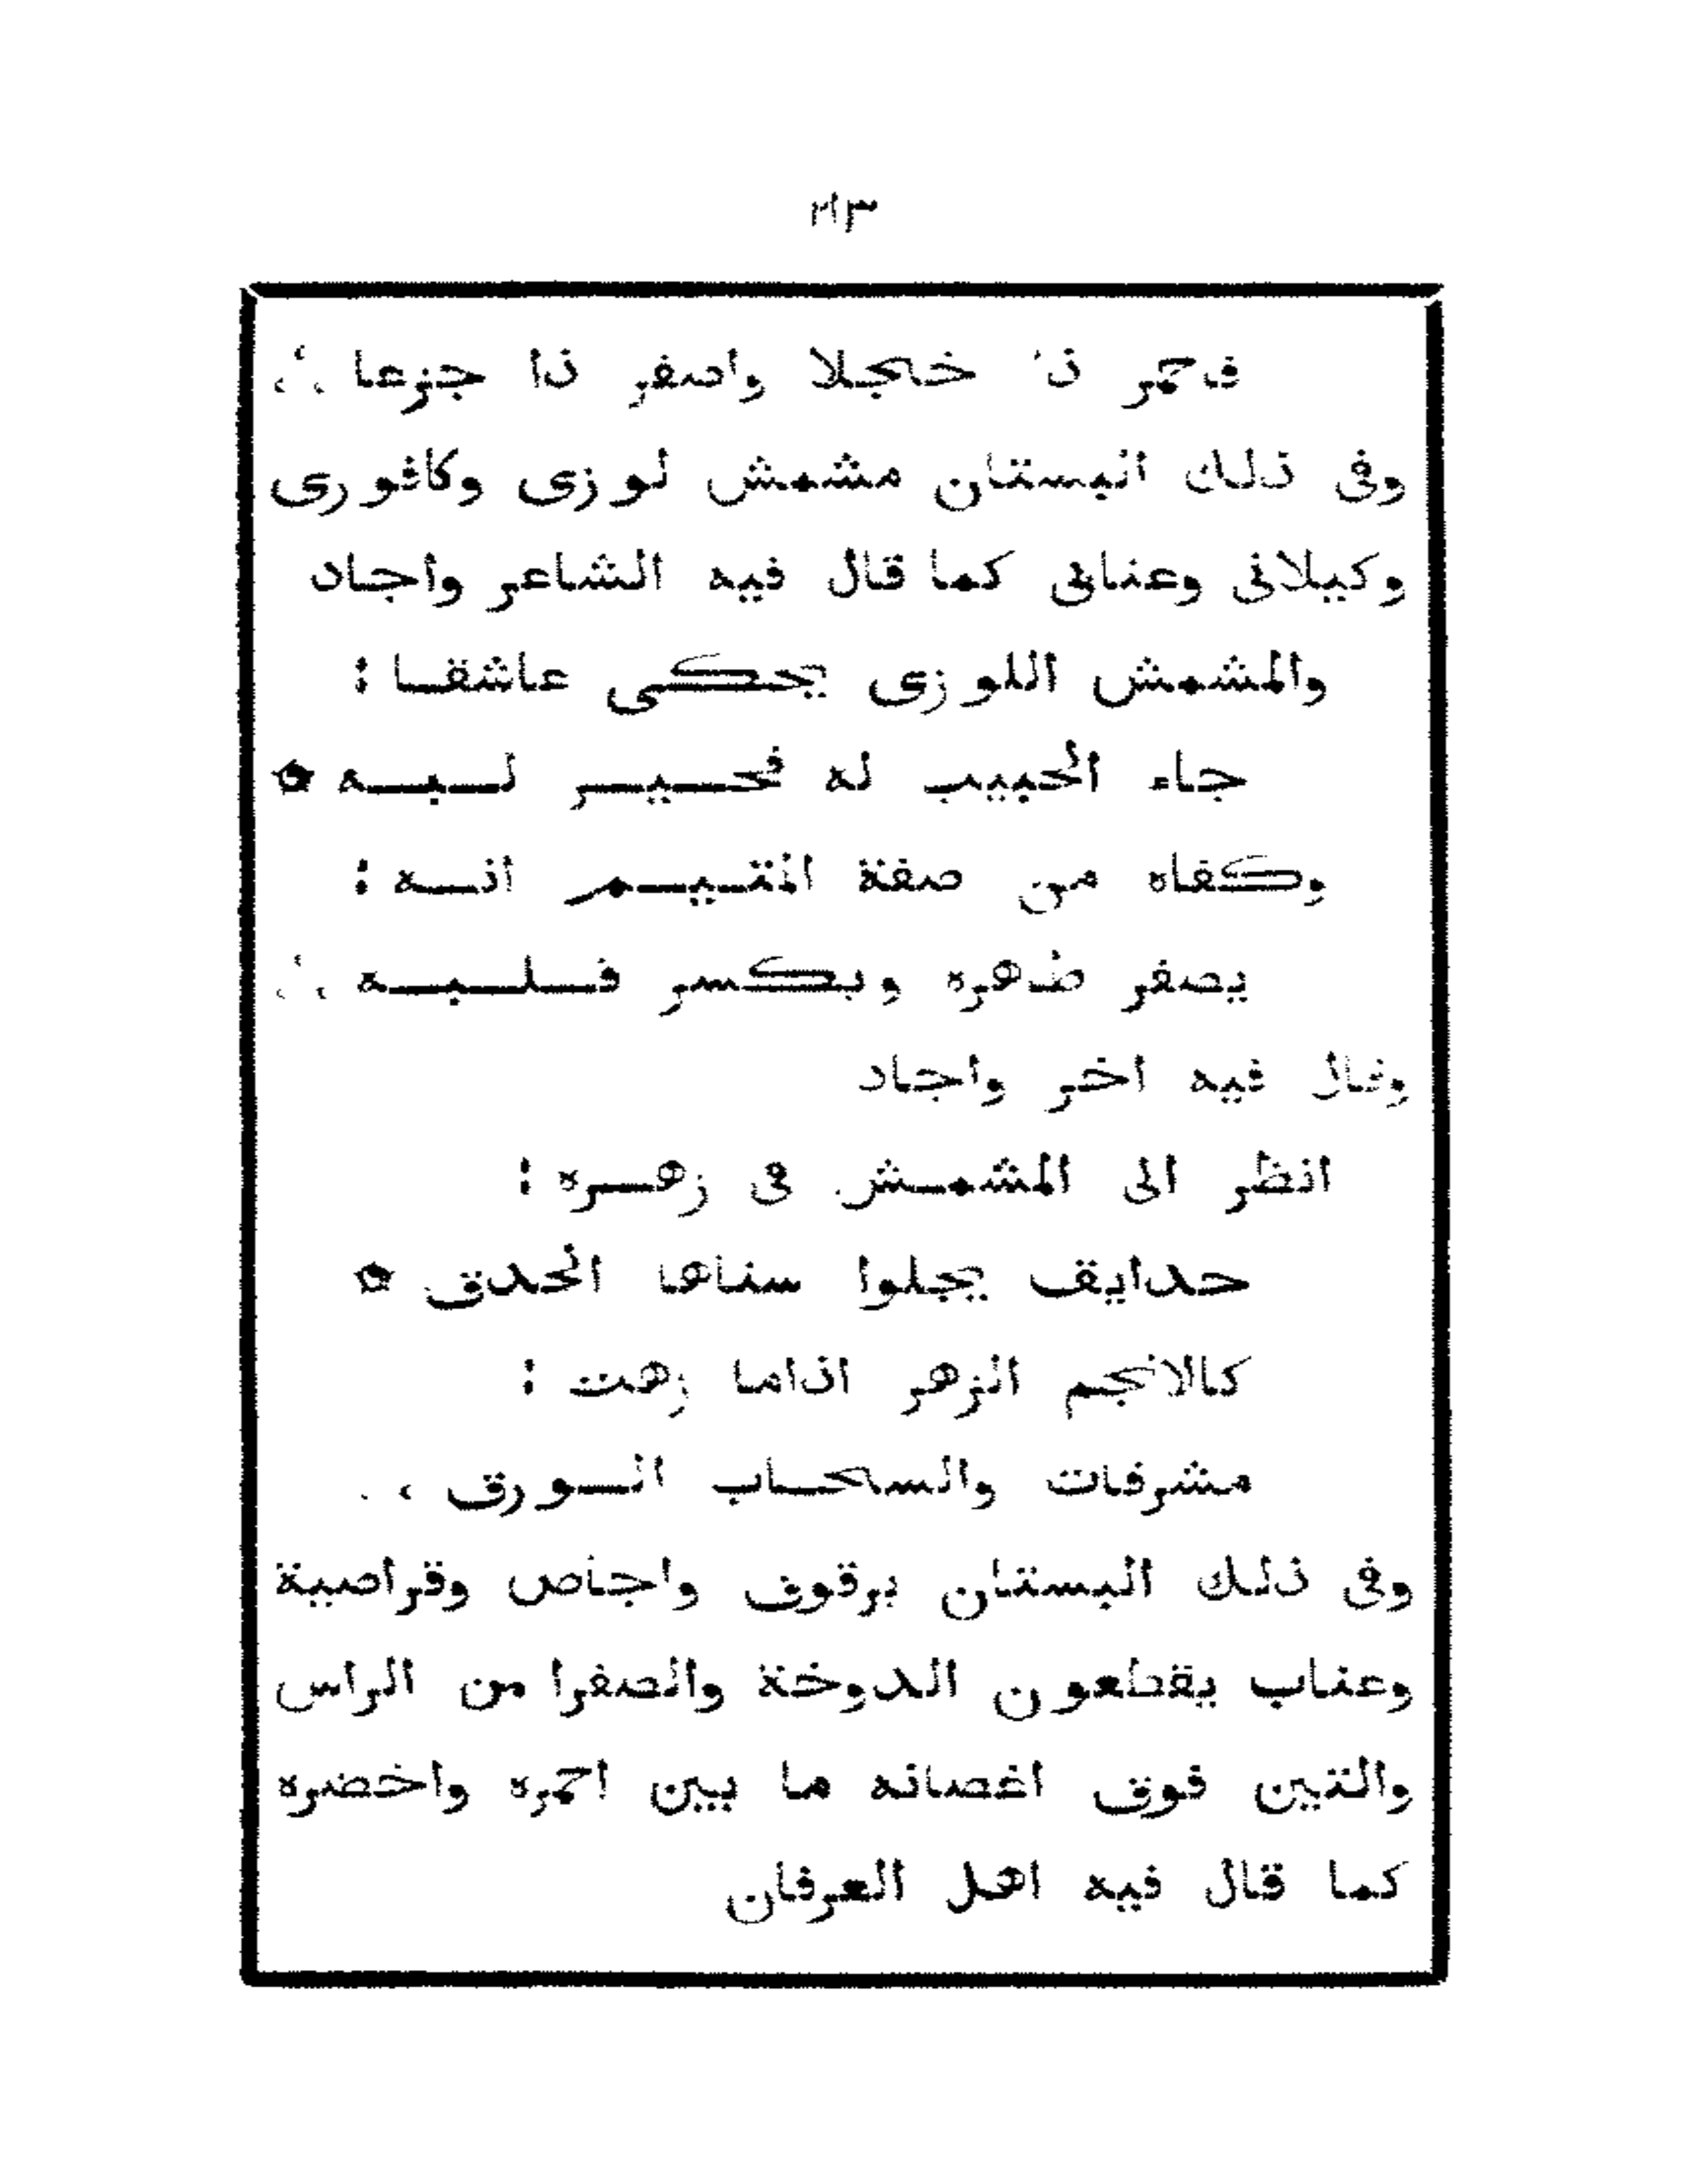 فاحمر ذا خجلا واصفر ذا جزعا ∴
وفى ذلك البستان مشمش لوزى وكافورى
وكيلانى وعنابى كما قال فيه الشاعر واجاد
والمشمش اللوزى يحكى عاشقا :
جاء الحبيب له فحير لبه ۞
وكفاه من صفة المتيم انه :
يصفر ظاهره ويكسر قلبه ∴
وقال فيه اخر واجاد
انظر الى المشمش فى زهره :
حدايق يجلوا سناها الحدق ۞
كالانجم الزهر اذاما زهت :
مشرفات والسحاب الورق ∴
وفى ذلك البستان برقوق واجاص وقراصية
وعناب يقطعون الدوخة والصفرا من الراس
والتين فوق اغصانه ما بين احمره واخضره
كما قال فيه اهل العرفان